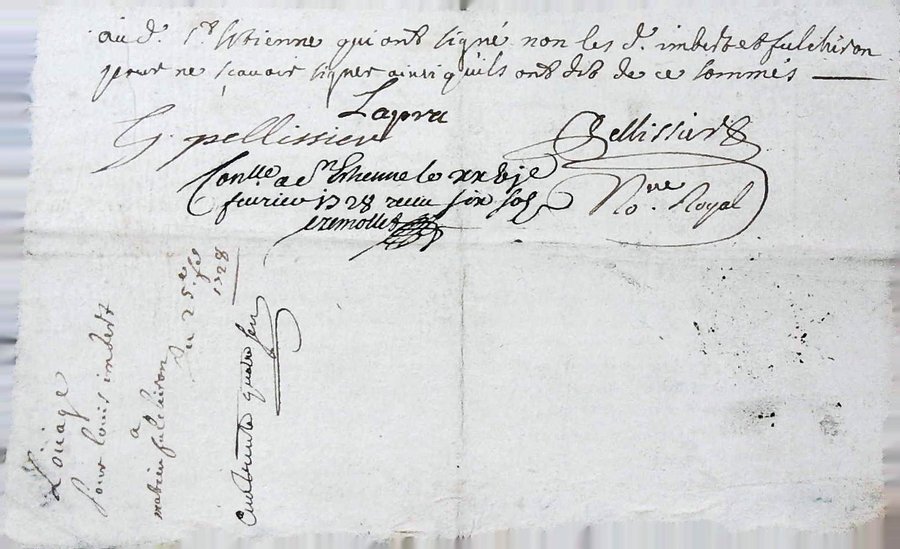 aud. St Etienne qui ont signé non les d. imbert et fulchiron
pour ne scavoir signer ainsi quils ont dit de ce sommés
Lapra
G. pellissier
Pellissier
Conlle a St Ethienne le xxvje
fevrier 1728 receu six sols
Nore Royal
Louage
pour louis imbert
a
matieu fulchiron
Du 25e fe
1728
quatre